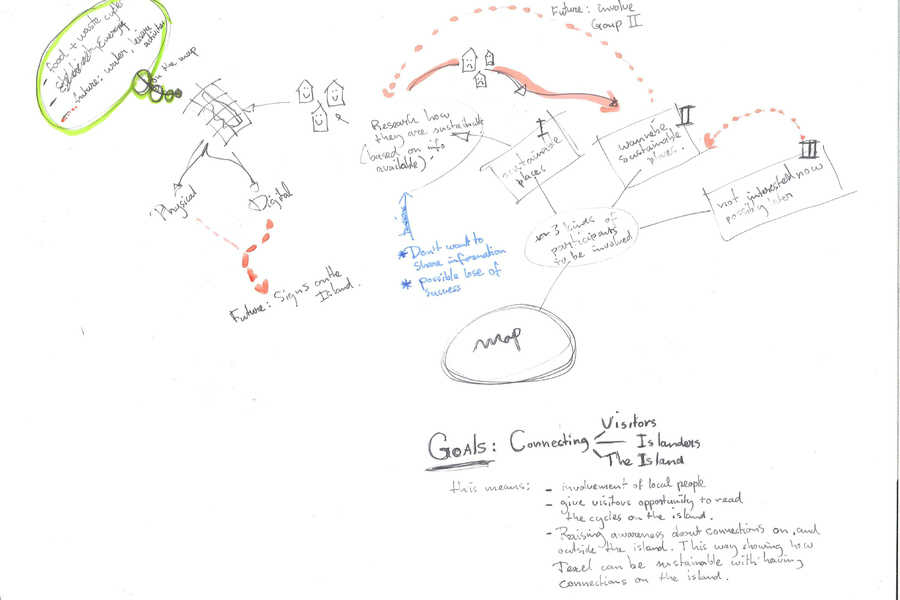 - food + waste cycle
- Electricity Energy
- future: water, leisure
activities
on the map
Future: involve
Group II
Research how
they are sustainable
(based on info
available).
I
sustainable
places
II
wannabe
sustainable
places.
III
not interested now
possibly later
3 kinds of
participants
to be involved
Physical
Digital
Future: Signs on the
Island.
* Don't want to
share information
* possible lose of
success
map
GOALS: Connecting
Visitors
Islanders
The Island
this means:
- involvement of local people
- give visitors opportunity to read
the cycles on the island.
- Raising awareness about connections on, and
outside the island. This way showing how
Texel can be sustainable with having
connections on the island.